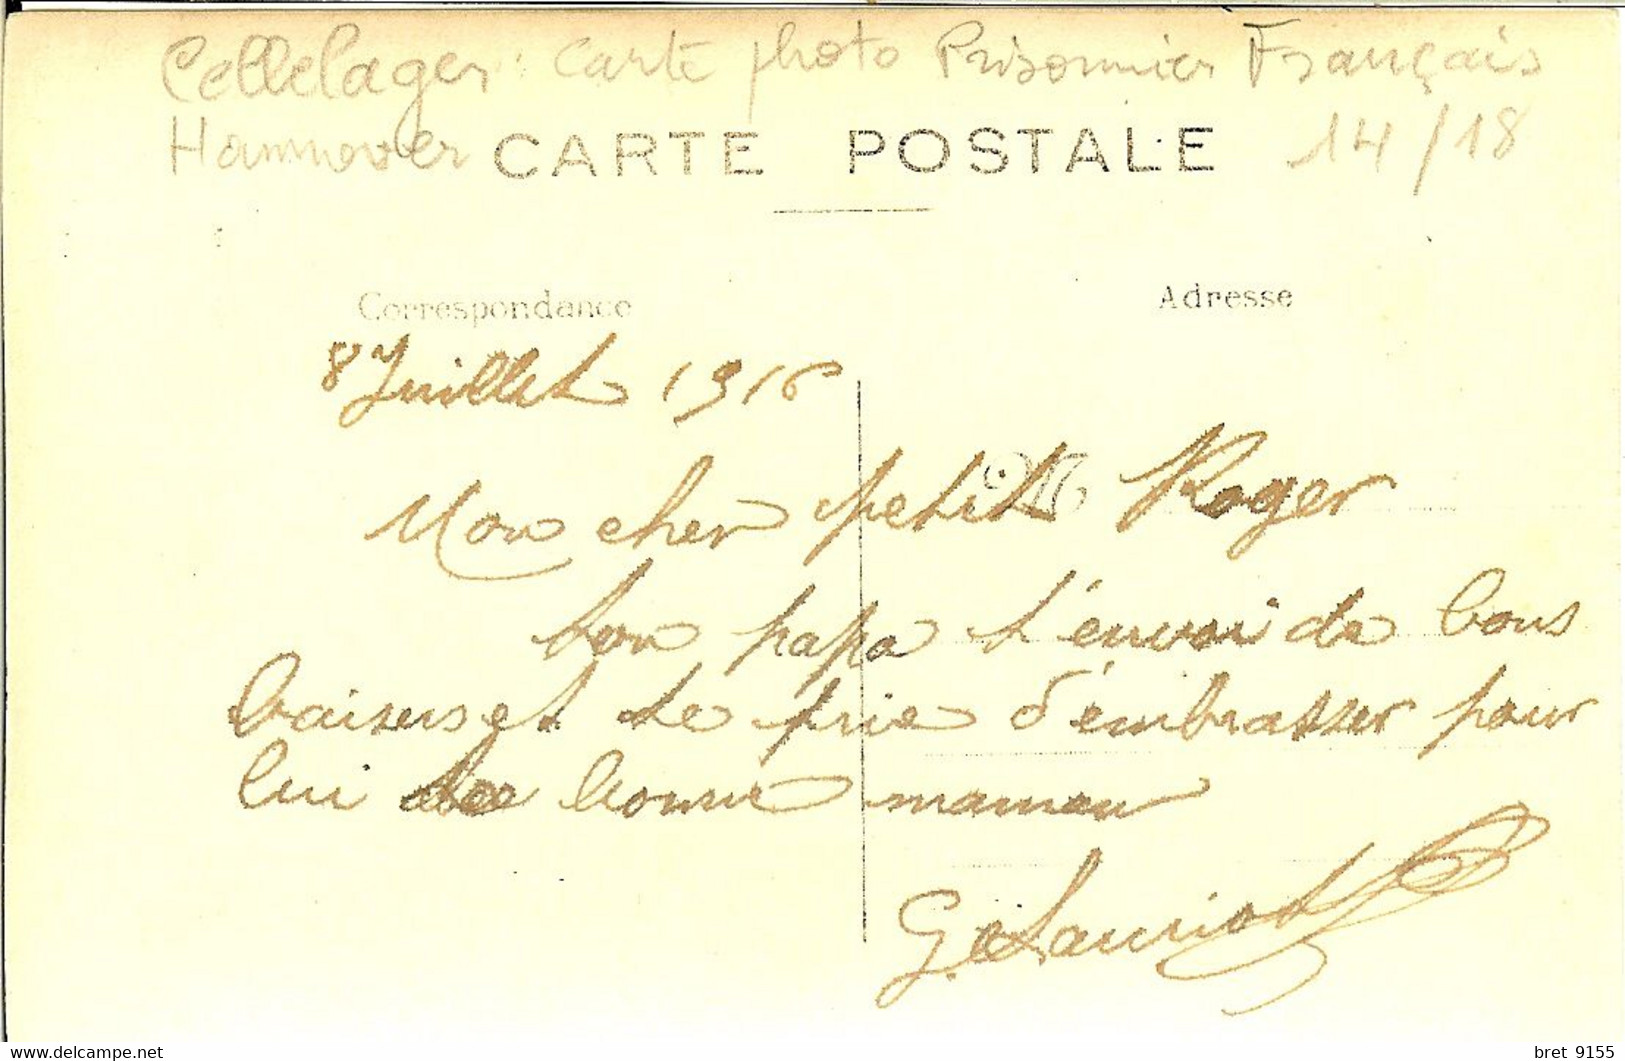 Cellelager : Carte photo Prisonnier Français
Hannover 14/18
CARTE POSTALE
Correspondance
Adresse
8 Juillet 1916
Mon cher petit Roger
bon papa t'envoi de bons
baisers et te prie d'embrasser pour
lui bonne maman
G.
bret 9155